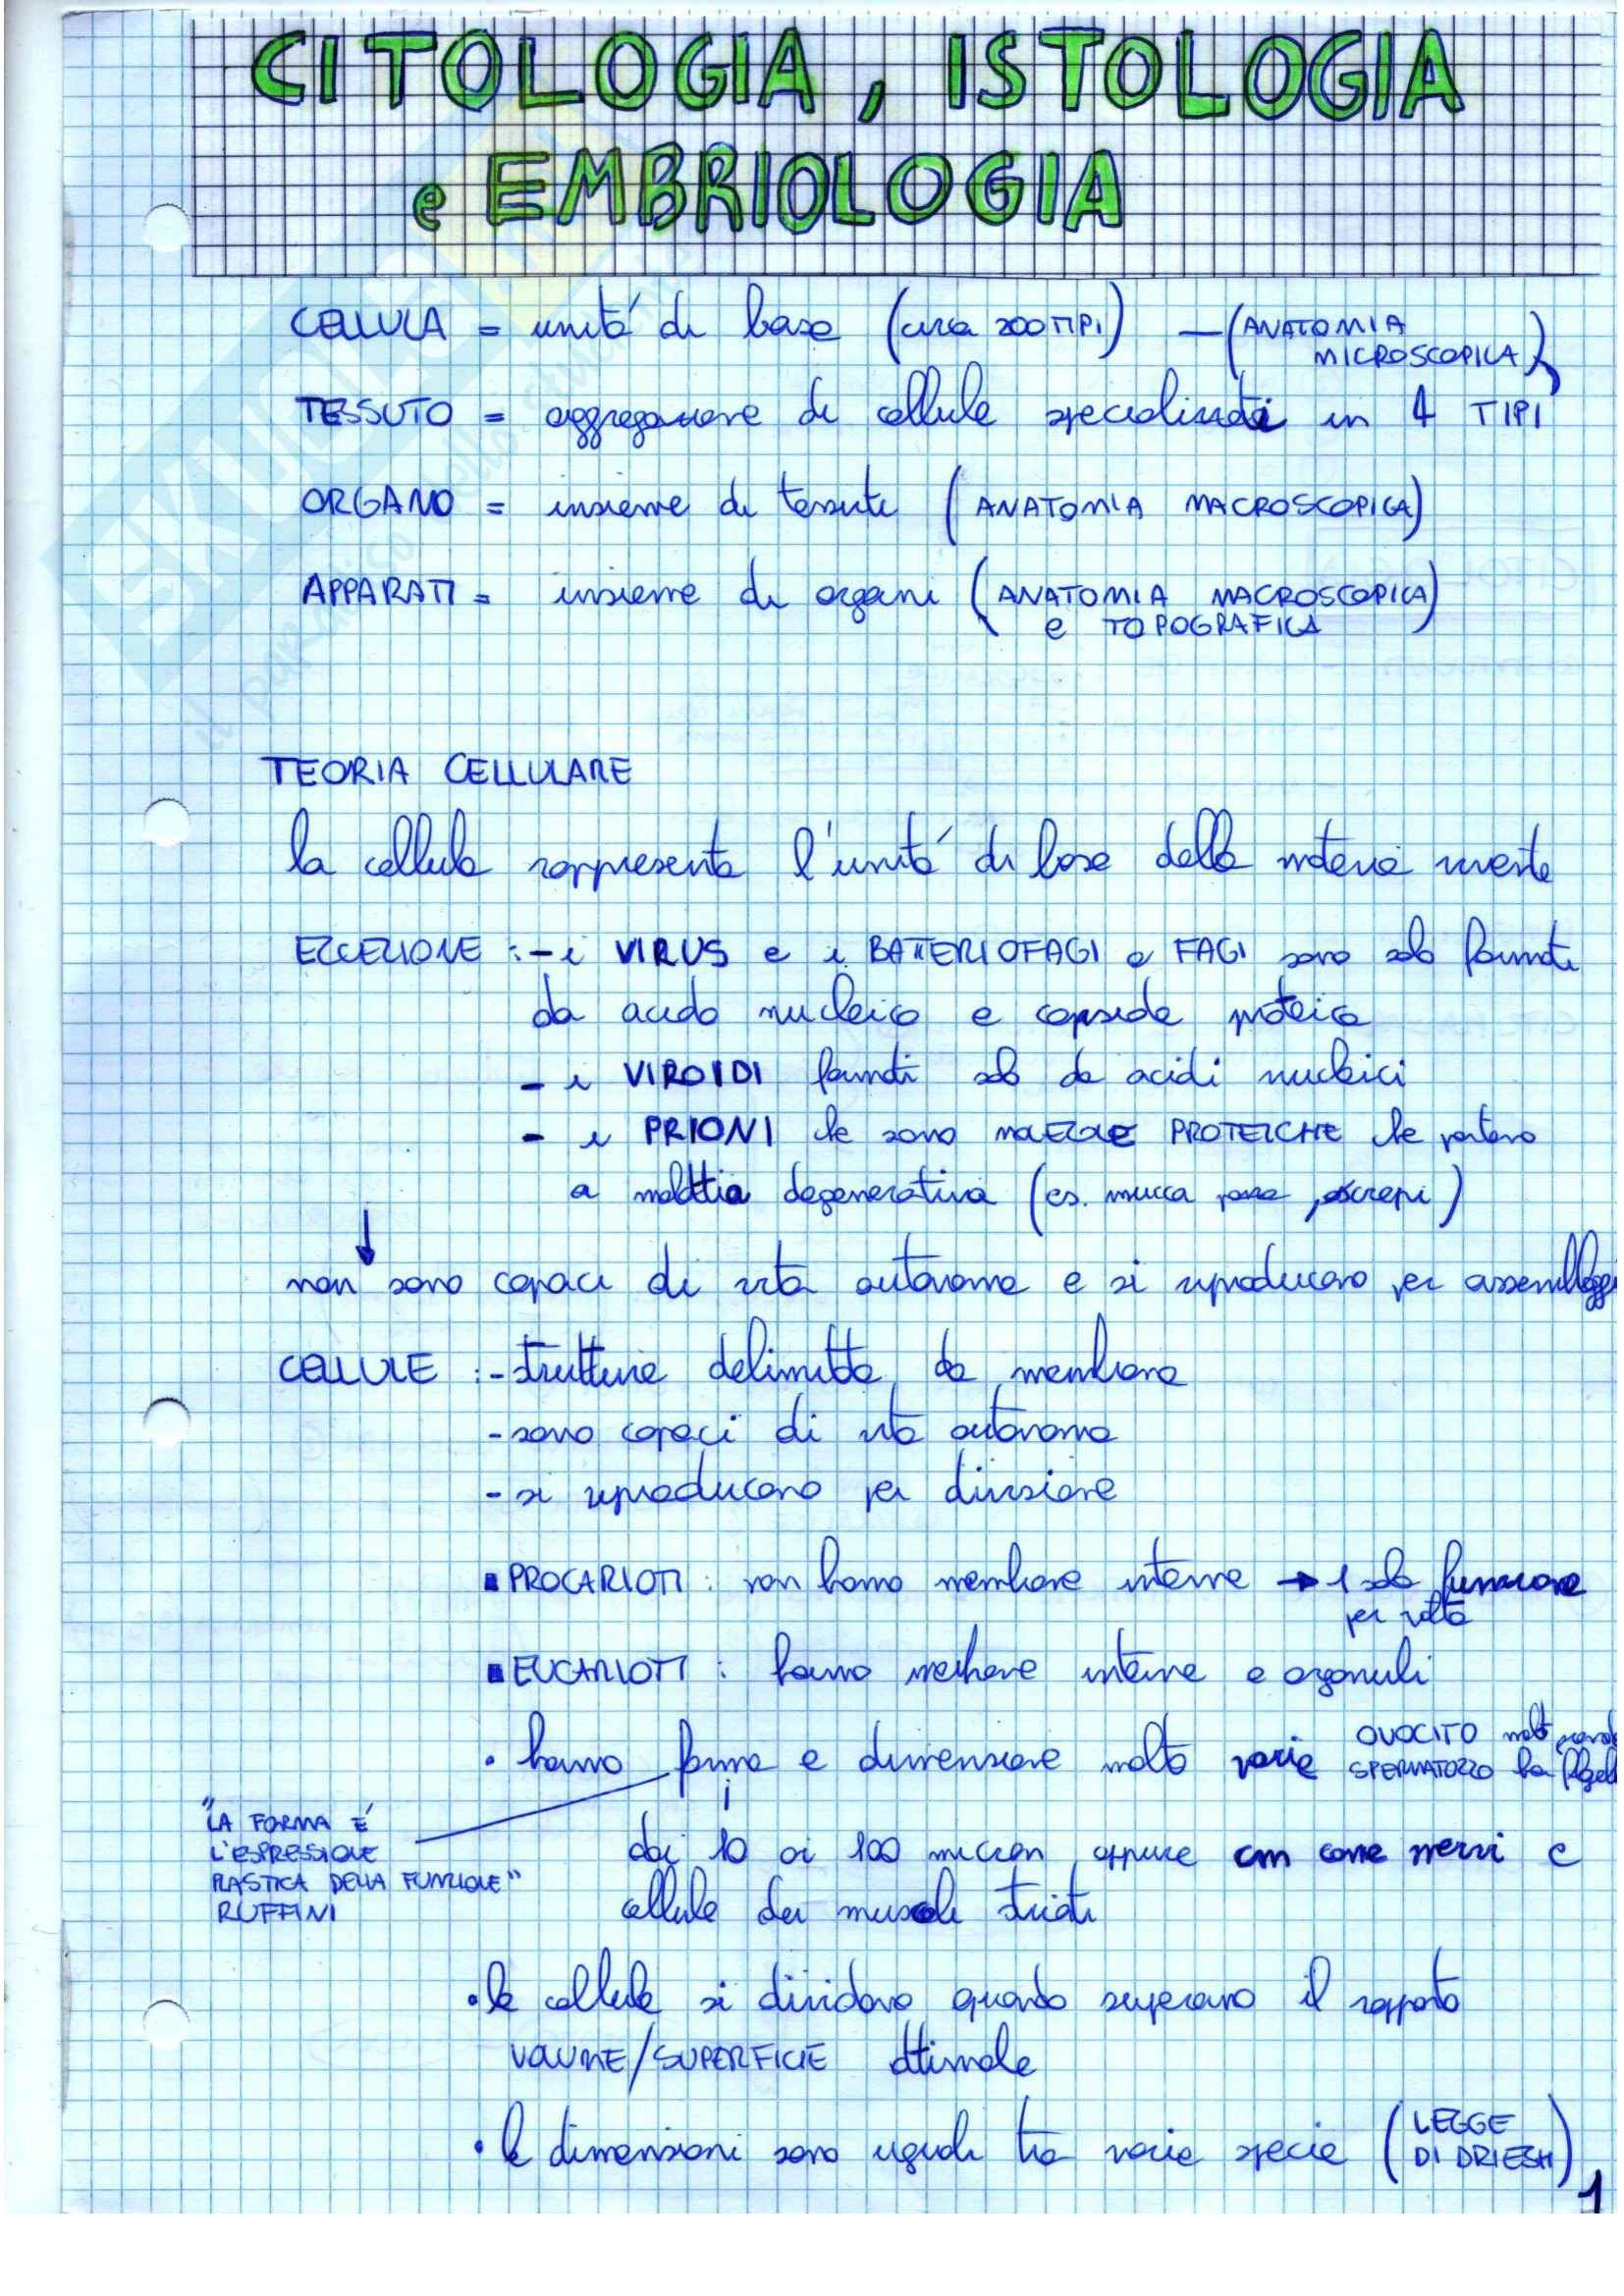 CITOLOGIA, ISTOLOGIA
e EMBRIOLOGIA
CELLULA = unità di base (circa 200 TIPI) – (ANATOMIA
MICROSCOPICA)
TESSUTO = aggregazione di cellule specializzate in 4 TIPI
ORGANO = insieme di tessuti (ANATOMIA MACROSCOPICA)
APPARATI = insieme di organi (ANATOMIA MACROSCOPICA
e TOPOGRAFICA)
TEORIA CELLULARE
la cellula rappresenta l'unità di base della materia vivente
ECCEZIONE :- i VIRUS e i BATTERIOFAGI o FAGI sono solo formati
da acido nucleico e capside proteico
- i VIROIDI formati solo da acidi nucleici
- i PRIONI che sono MOLECOLE PROTEICHE che portano
a malattia degenerativa (es. mucca pazza, scrapi)
↓
non sono capaci di vita autonoma e si riproducono per assemblaggi
CELLULE :- strutture delimitate da membrana
- sono capaci di vita autonoma
- si riproducono per divisione
▪ PROCARIOTI : non hanno membrane interne → 1 sola funzione
per volta
▪ EUCARIOTI : hanno membrane interne e organuli
• hanno forma e dimensione molto varie OVOCITO molto grande
SPERMATOZOO ha flagell
"LA FORMA È
L'ESPRESSIONE
PLASTICA DELLA FUNZIONE"
RUFFINI
dai 10 ai 100 micron oppure cm come nervi e
cellule dei muscoli striati
• le cellule si dividono quando superano il rapporto
VOLUME/SUPERFICIE ottimale
• le dimensioni sono uguali tra varie specie (LEGGE
DI DRIESH)
1